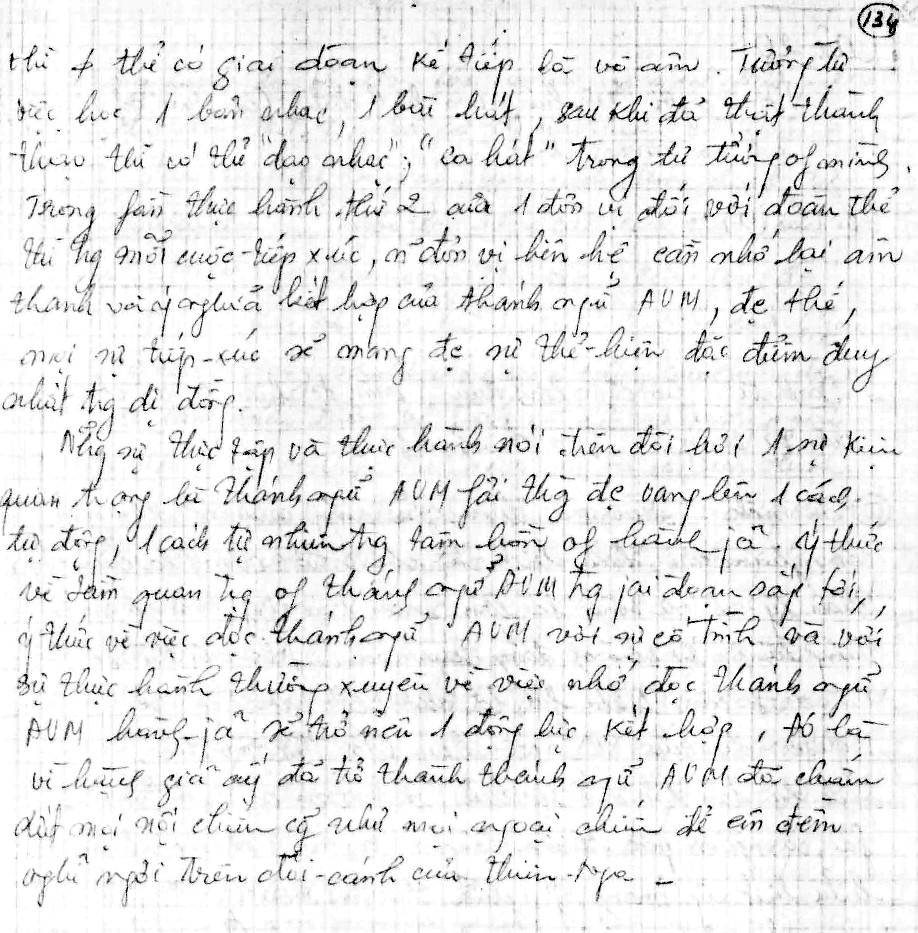 134
thì + thể có giai đoạn kế tiếp là vô âm. Tưởng tự
việc học 1 bản nhạc, 1 bài hát, sau khi đã thật thành
thạo thì có thể "dạo nhạc"; "ca hát" trong tư tưởng of mình.
Trong fần thực hành thứ 2 của 1 đơn vị đối với đoàn thể
thì tng mỗi cuộc tiếp xúc, n~ đơn vị liên hệ cần nhớ lại âm
thanh và ý nghĩa kết hợp của thánh ngữ AUM, đc thế,
mọi sự tiếp-xúc sẽ mang đc sự thể-hiện đặc điểm duy
nhất tng dị đồng.
Nhg sự thực tập và thực hành nói trên đòi hỏi 1 sự kiện
quan trọng là thánh ngữ AUM fải thg đc vang lên 1 cách
tự động, 1 cách tự nhiên tng tâm hồn of hành jả. ý thức
về tầm quan tng of thánh ngữ AUM tng jai đoạn sắp tới,
ý thức về việc đọc thánh ngữ AUM với sự cố tình và với
sự thực hành thường xuyên về việc nhớ đọc thánh ngữ
AUM hành-jả sẽ trở nên 1 động lực kết hợp, đó là
vì hành giả ấy đã trở thành thánh ngữ AUM đã chấm
dứt mọi nội chiến cg như mọi ngoại chiến để êm đềm
nghỉ ngơi trên đôi-cánh của thiên-Nga –